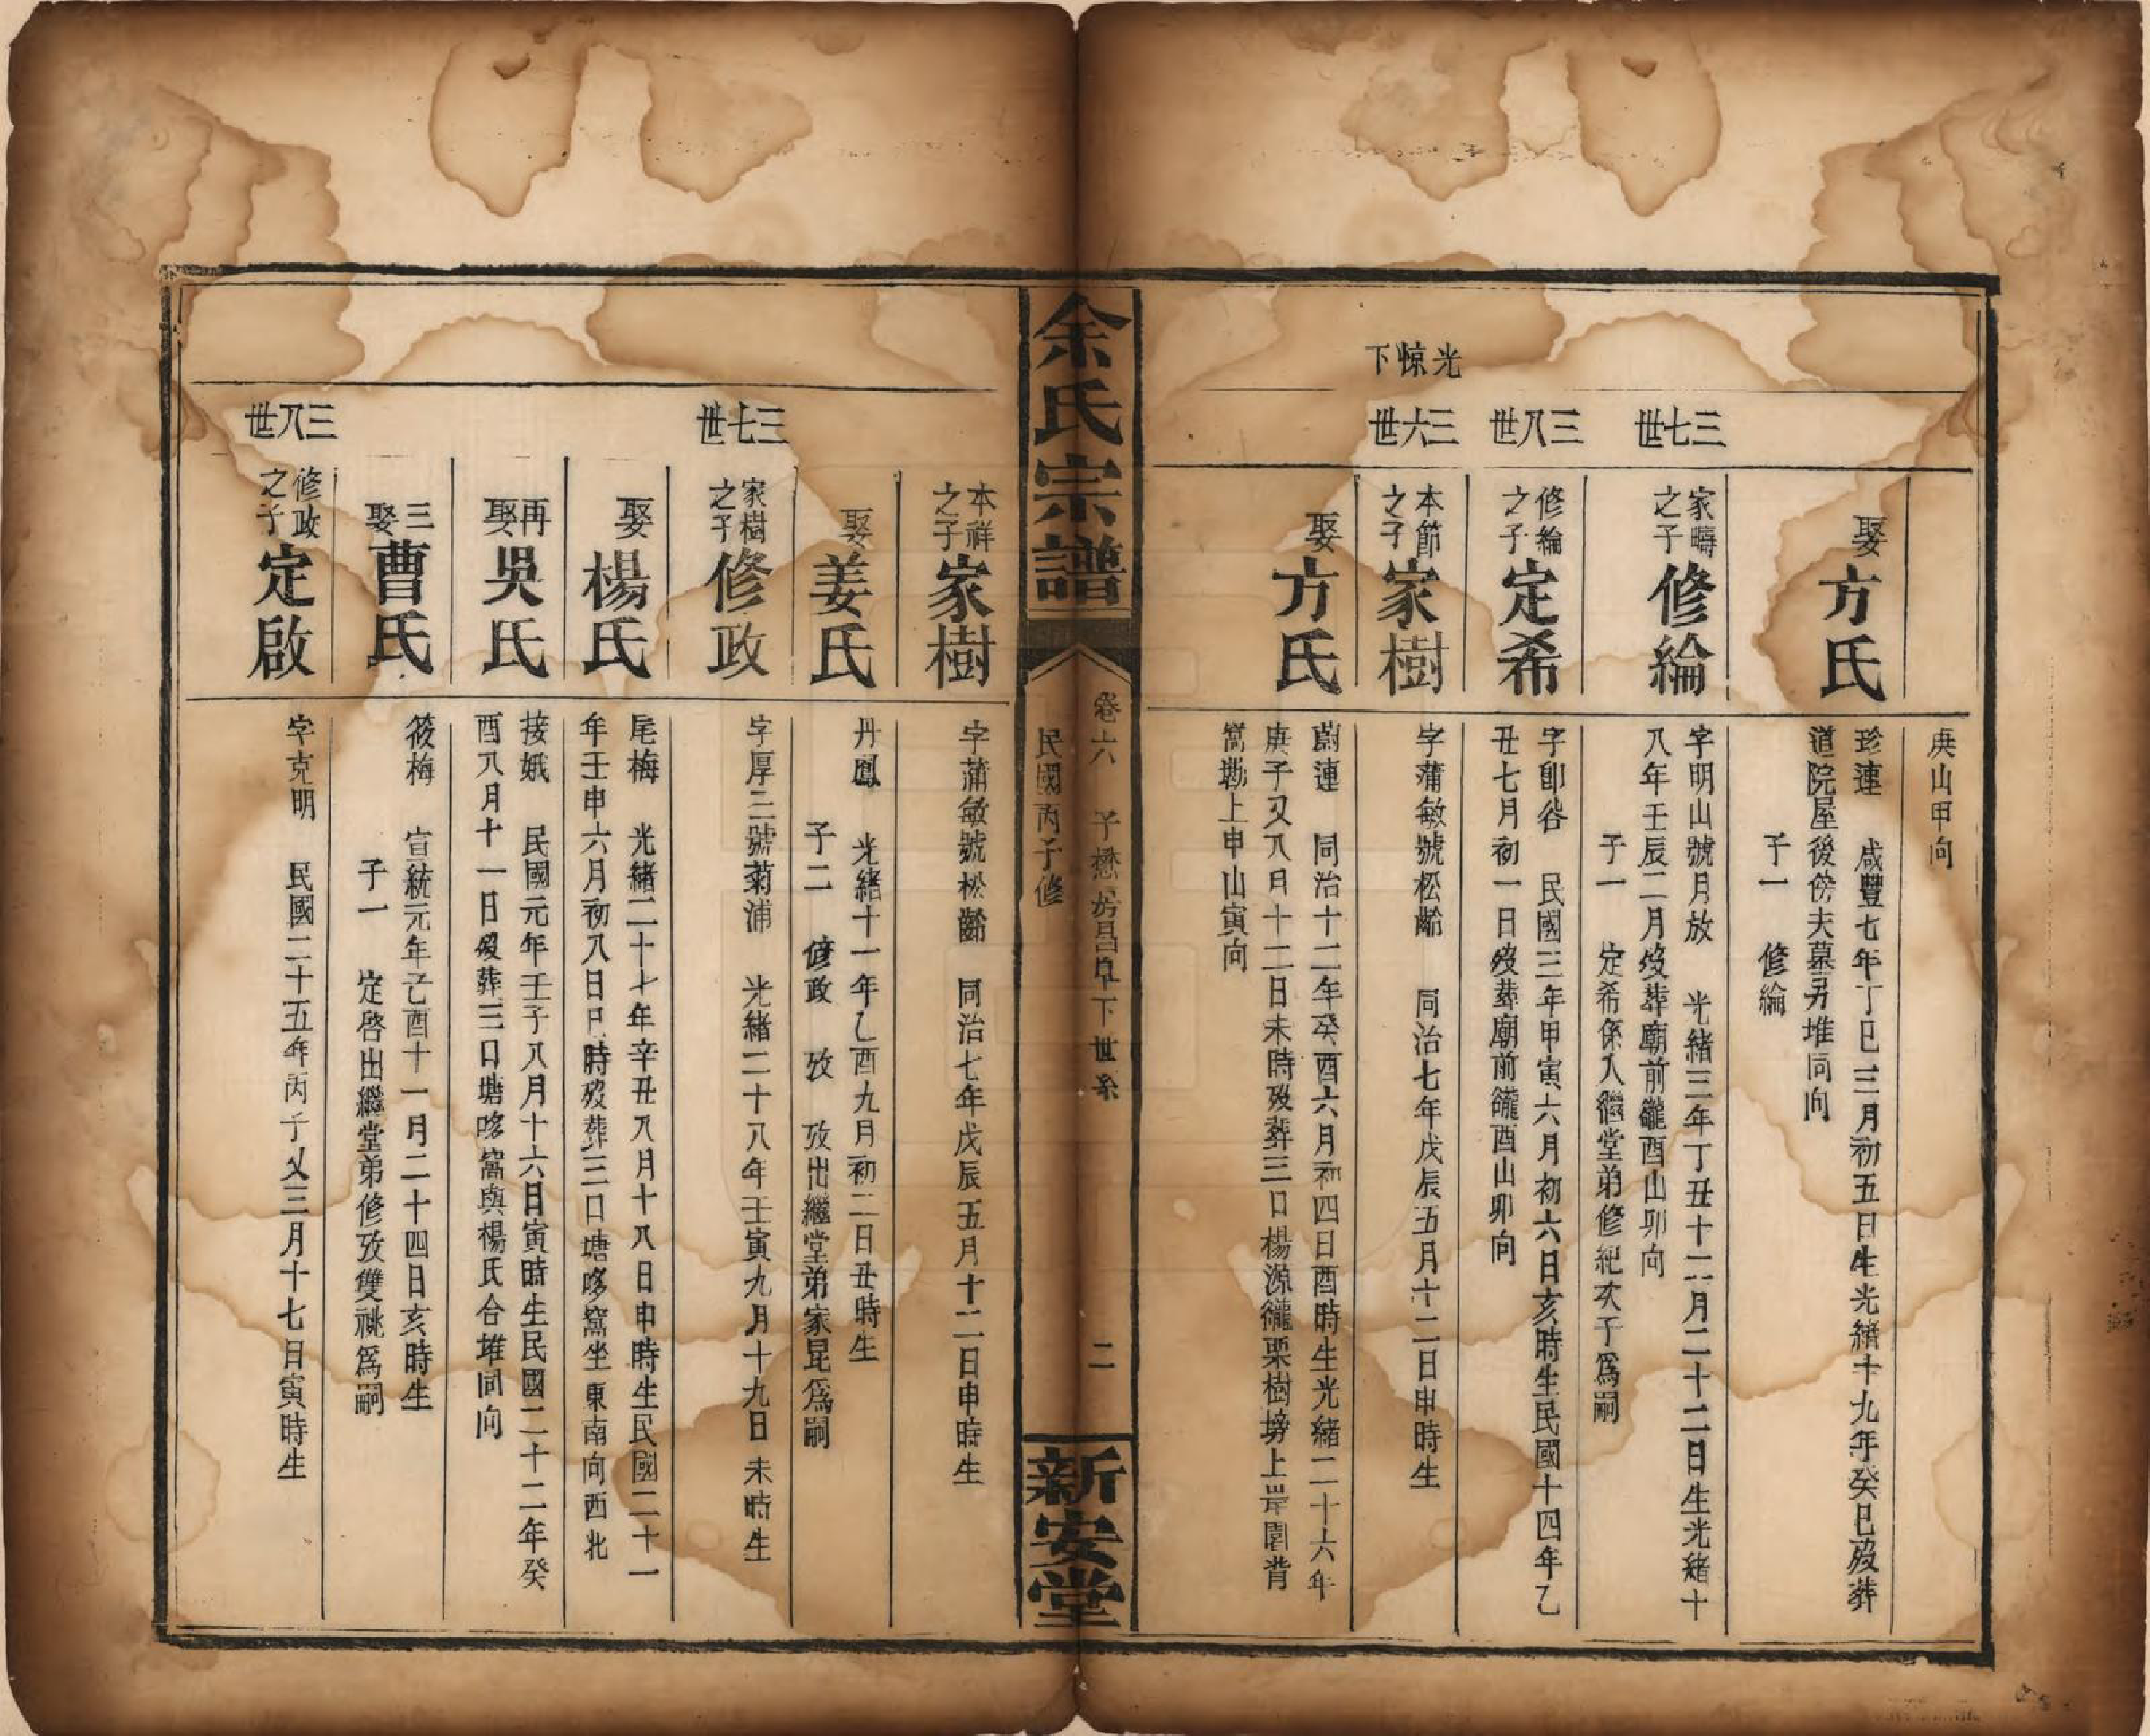 光惊下
庚山甲向
娶方氏
珍連 咸豐七年丁巳三月初五日生光緒十九年癸巳歿葬
道院屋後傍夫墓另堆同向
子一 修綸
三七世
家疇之子修綸
字明山號月放 光緒三年丁丑十二月二十二日生光緒十
八年壬辰二月歿葬廟前巃酉山卯向
子一 定希係入繼堂弟修紀次子爲嗣
三八世
修綸之子定希
字卽谷 民國三年甲寅六月初六日亥時生民國十四年乙
丑七月初一日歿葬廟前巃酉山卯向
三六世
本節之子家樹
字蒲敏號松齡 同治七年戊辰五月十二日申時生
娶方氏
蔚連 同治十二年癸酉六月初四日酉時生光緒二十六年
庚子又八月十二日未時歿葬三口楊源巃栗樹塝上岸園背
窩墈上申山寅向
余氏宗譜
卷六 子懋房昌阜下世系 二
民國丙子修
新安堂
本祥之子家樹
字蒲敏號松齡 同治七年戊辰五月十二日申時生
娶姜氏
丹鳳 光緒十一年乙酉九月初二日丑時生
子二 修政 攷 攷出繼堂弟家昆爲嗣
三七世
家樹之子修政
字厚三號菊浦 光緒二十八年壬寅九月十九日未時生
娶楊氏
尾梅 光緒二十七年辛丑八月十八日申時生民國二十一
年壬申六月初八日巳時歿葬三口塘㖼窩坐東南向西北
再娶吳氏
接娥 民國元年壬子八月十六日寅時生民國二十二年癸
酉八月十一日歿葬三口塘㖼窩與楊氏合堆同向
三娶曹氏
筱梅 宣統元年乙酉十一月二十四日亥時生
子一 定啓出繼堂弟修攷雙祧爲嗣
三八世
修政之子定啟
字克明 民國二十五年丙子又三月十七日寅時生